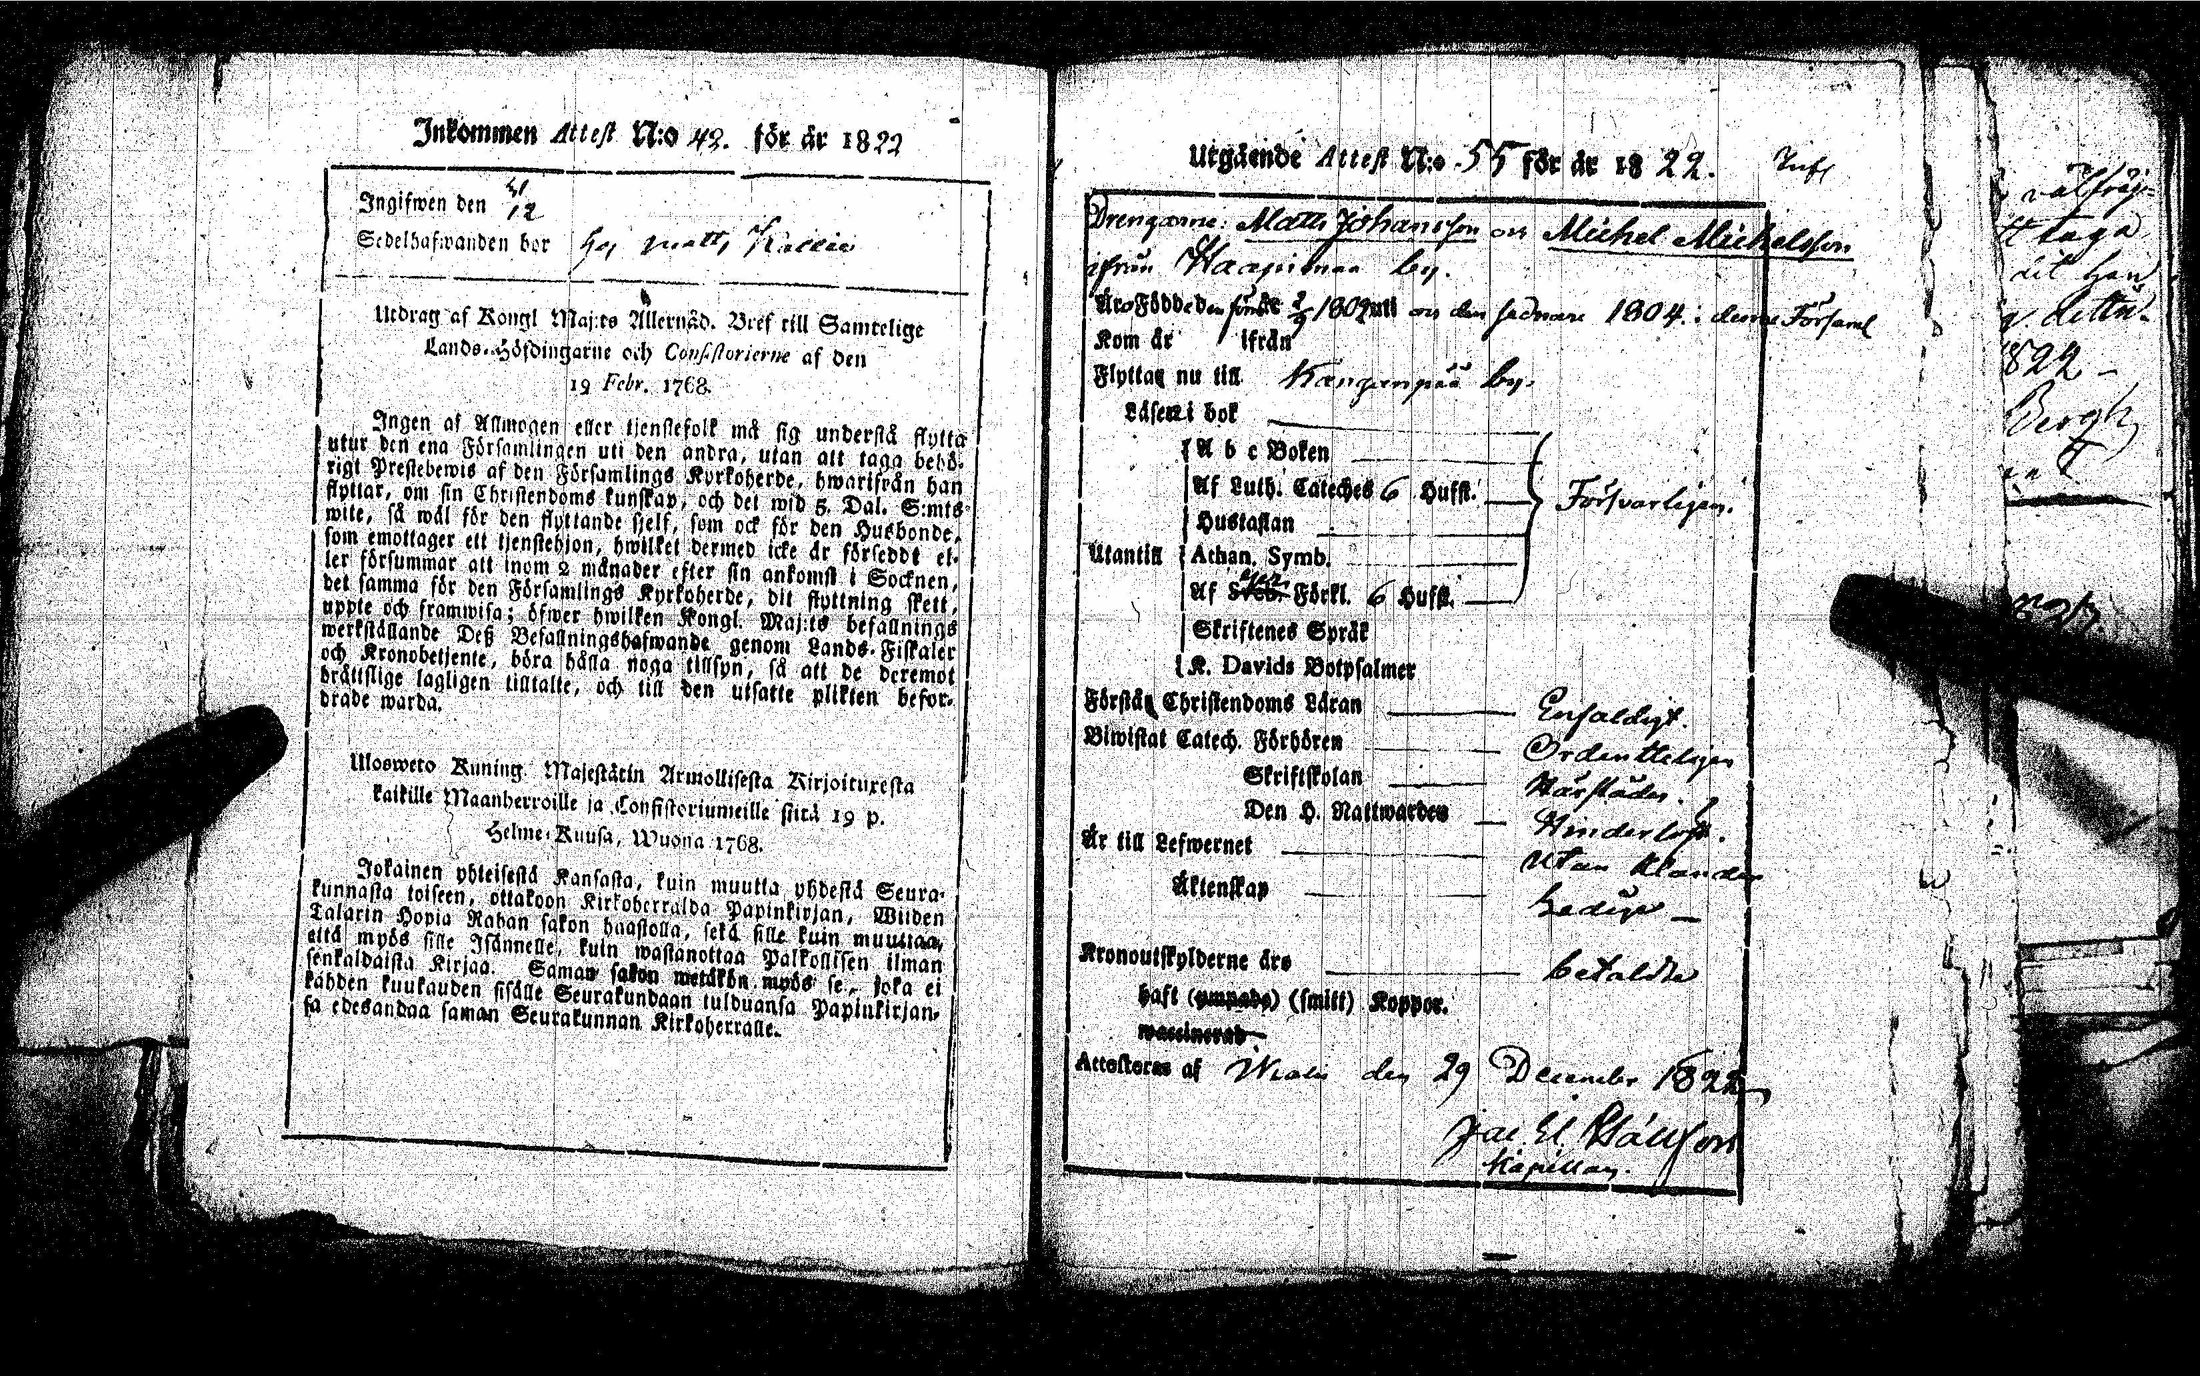 Inkommen Attest N:o 42. för år 1822
Ingifwen den 31/12
Sedelhafwanden bor hos Matts
Utdrag af Kongl Maj:ts Allernåd. Bref till Samtelige
Lands-Höfdingarne och Consistorierne af den
19 Febr. 1768.
Ingen af Allmogen eller tjenstefolk må sig understå flytta
utur den ena Församlingen uti den andra, utan att taga behö-
rigt Prestebewis af den Församlings Kyrkoherde, hwarifrån han
flyttar, om sin Christendoms kunskap, och det wid 5. Dal. S:mts
wite, så wäl för den flyttande sjelf, som ock för den Husbonde,
som emottager ett tjenstehjon, hwilket dermed icke är försedt el-
ler försummar att inom 2 månader efter sin ankomst i Socknen,
det samma för den Församlings Kyrkoherde, dit flyttning skett,
uppte och framwisa; öfwer hwilken Kongl. Maj:ts befallnings
werkställande Deß Befallningshafwande genom Lands-Fiskaler
och Kronobetjente, böra hålla noga tillsyn, så att de deremot
bråttslige lagligen tilltalte, och till den utsatte plikten befor-
drade warda.
Ulosweto Kuning. Majestätin Armollisesta Kirjoituxesta
kaikille Maanherroille ja Consistoriumeille siitä 19 p.
Helme-Kuusa, Wuona 1768.
Jokainen yhteisestä Kansasta, kuin muutta yhdestä Seura-
kunnasta toiseen, ottakoon Kirkoherralda Papinkirjan, Wiiden
Talarin Hopia Rahan sakon haastolla, sekä sille kuin muuttaa,
että myös sille Isännelle, kuin wastanottaa Palkollisen ilman
senkaldaista Kirjaa. Saman sakon wetäkön myös se, joka ei
kahden kuukauden sisälle Seurakundaan tulduansa Papinkirjan-
sa edesandaa saman Seurakunnan Kirkoherralle.
Utgående Attest N:o 55 för år 1822.
Drengarne: Matts Johansson och Michel Michelsson
ifrån by.
Äro Födde den förre 2/9 1802 och den sednare 1804. i denne Församl
Kom år ifrån
Flytta nu till Kanganpää by.
Läsa i bok
A b c Boken
Af Luth. Cateches 6 Hufst. Försvarligen.
Hustaflan
Utantill Athan. Symb.
Af Sveb. Förkl. 6 Hufst.
Skriftenes Språk
K. Davids Botpsalmer
Förstå Christendoms Läran Enfaldigt.
Biwistat Catech. Förhören Ordentteligen
Skriftskolan Härstädes.
Den H. Nattwarden Hinderlöst.
Är till Lefwernet Utan Klander
Äktenskap Ledige
Kronoutskylderne äro betaldte
haft (ympade) (smitt) Koppor.
waccinerad
Attesteras af den 29 December 1822
Jac. El.
Kapellan.